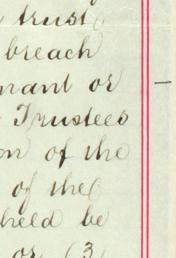 trust
breach
nant or
Trustees
on of the
of the
heed be
or (3)